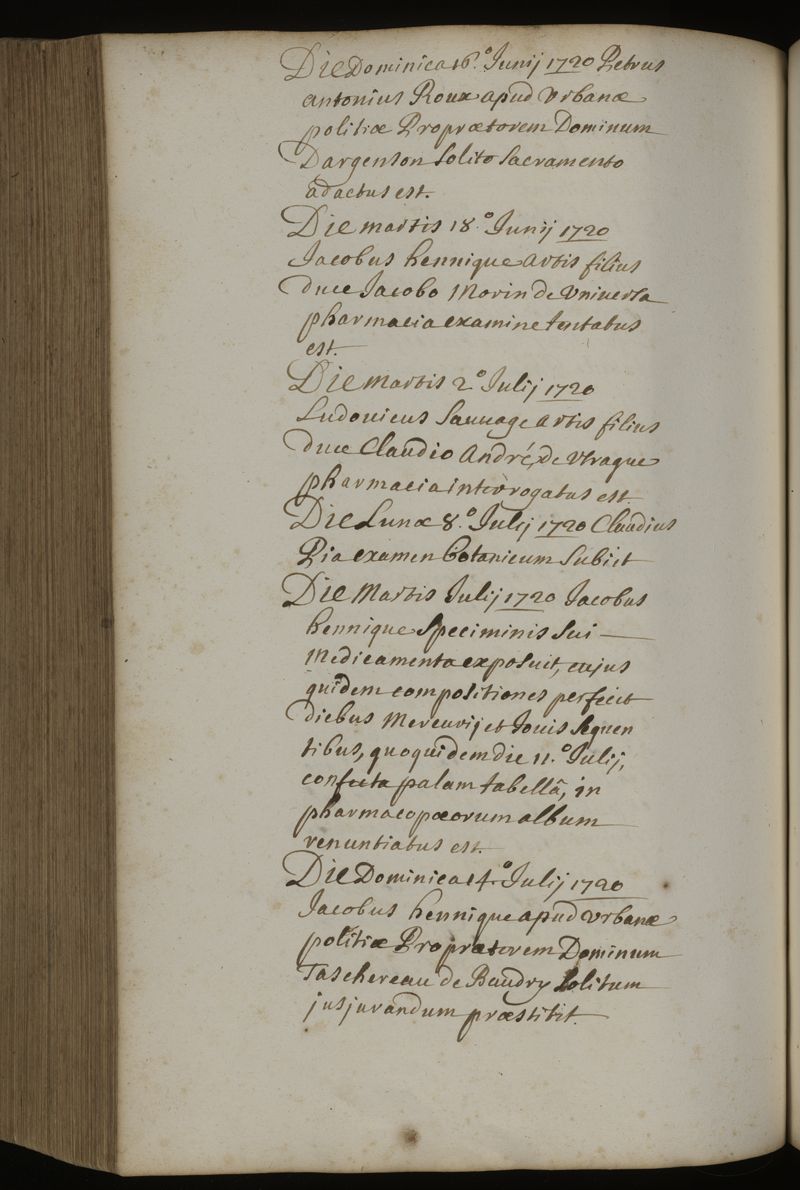 Die Dominica 16.° Junij 1720 Petrus
antonius Roux apud Vrbanæ
politiæ Propræetorem Dominum
Dargenson solito sacramento
adactus est.
Die martis 18.° Junij 1720
Jacobus hennique artis filius
duce Jacobo Morin de Vniversa
pharmacia examine tentatus
est.
Die Martis 2.° Julij 1720
Ludouicus Sauuage artis filius
duce Claudio André, de Vtraque
pharmacia interrogatus est
Die Lunæ 8.° Julij 1720 Claudius
Pia examen Botanicum Subiit
Die Martis Julij 1720 Jacobus
hennique Speciminis sui
Medicamenta exposuit, cujus
quidem compositiones perfecit
diebus Mercurij et Jouis sequen
tibus, quo quidem die 11.° Julij,
confecta palam tabellâ, in
pharmacopœorum album
renuntiatus est.
Die Dominica 14.° Julij 1720
Jacobus hennique apud Vrbanæ
politiæ Propraetorem Dominum
Taschereau de Baudry Solitum
jusjurandum præstitit.